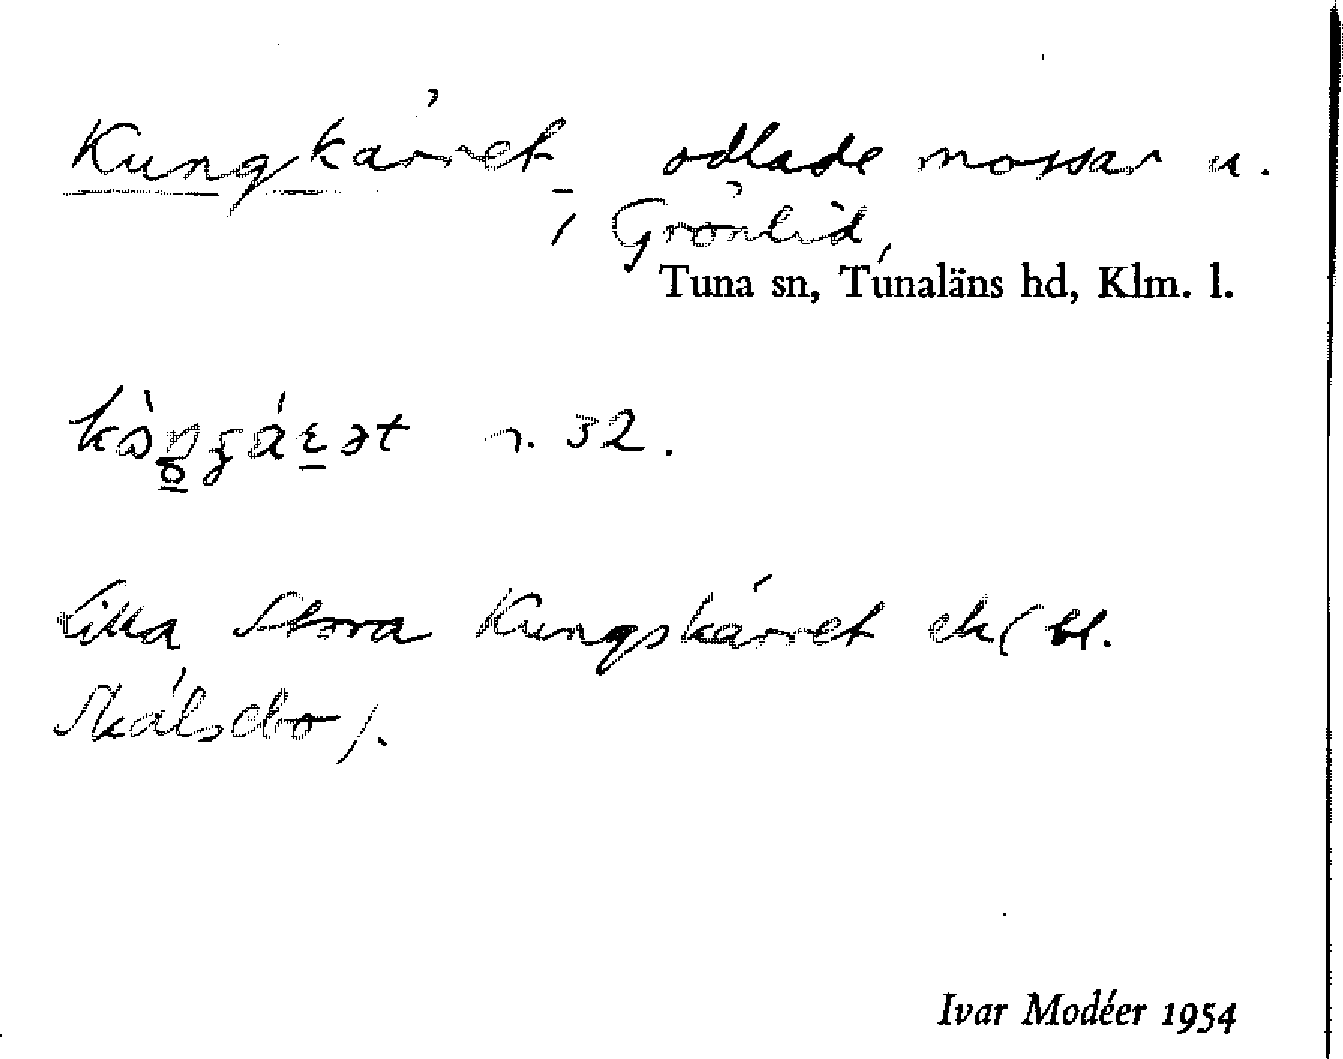 Kungkärret, odlade mossar u.
Grönlid,
Tuna sn, Tunaläns hd, Klm. l.
r. 32.
Lilla Stora Kungskärret ek( bl.
Skälsebo).
Ivar Modéer 1954